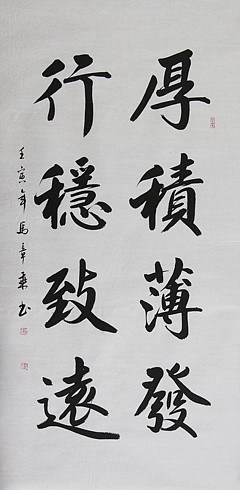 厚積薄發
行穩致遠
壬寅年馬章乘书